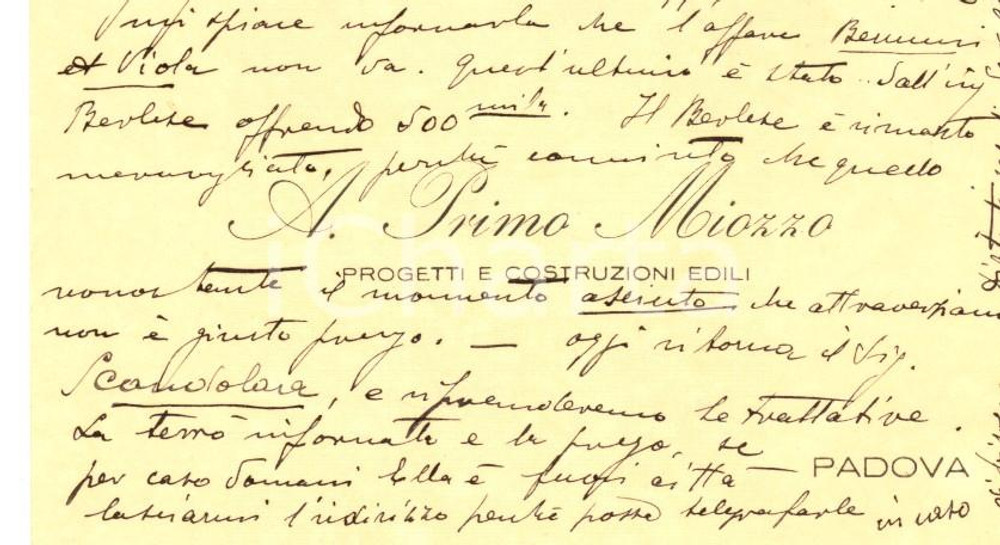 spiace informarla che l'affare
et Viola non va. Quest'ultimo è stato dall'ing
Berlese offrendo 500 mila. Il Berlese è rimasto
meravigliato, perchè convinto che quello
A. Primo Miozzo
PROGETTI E COSTRUZIONI EDILI
iCharta
nonostante il momento che attraversiamo
non è giusto prezzo. — oggi ritorna il Sig.
Scandolara, e riprenderemo le trattative.
La terrò informata e la prego, se
PADOVA
per caso domani Ella è fuori città —
lasciarmi l'indirizzo perchè possa telegrafarle in caso